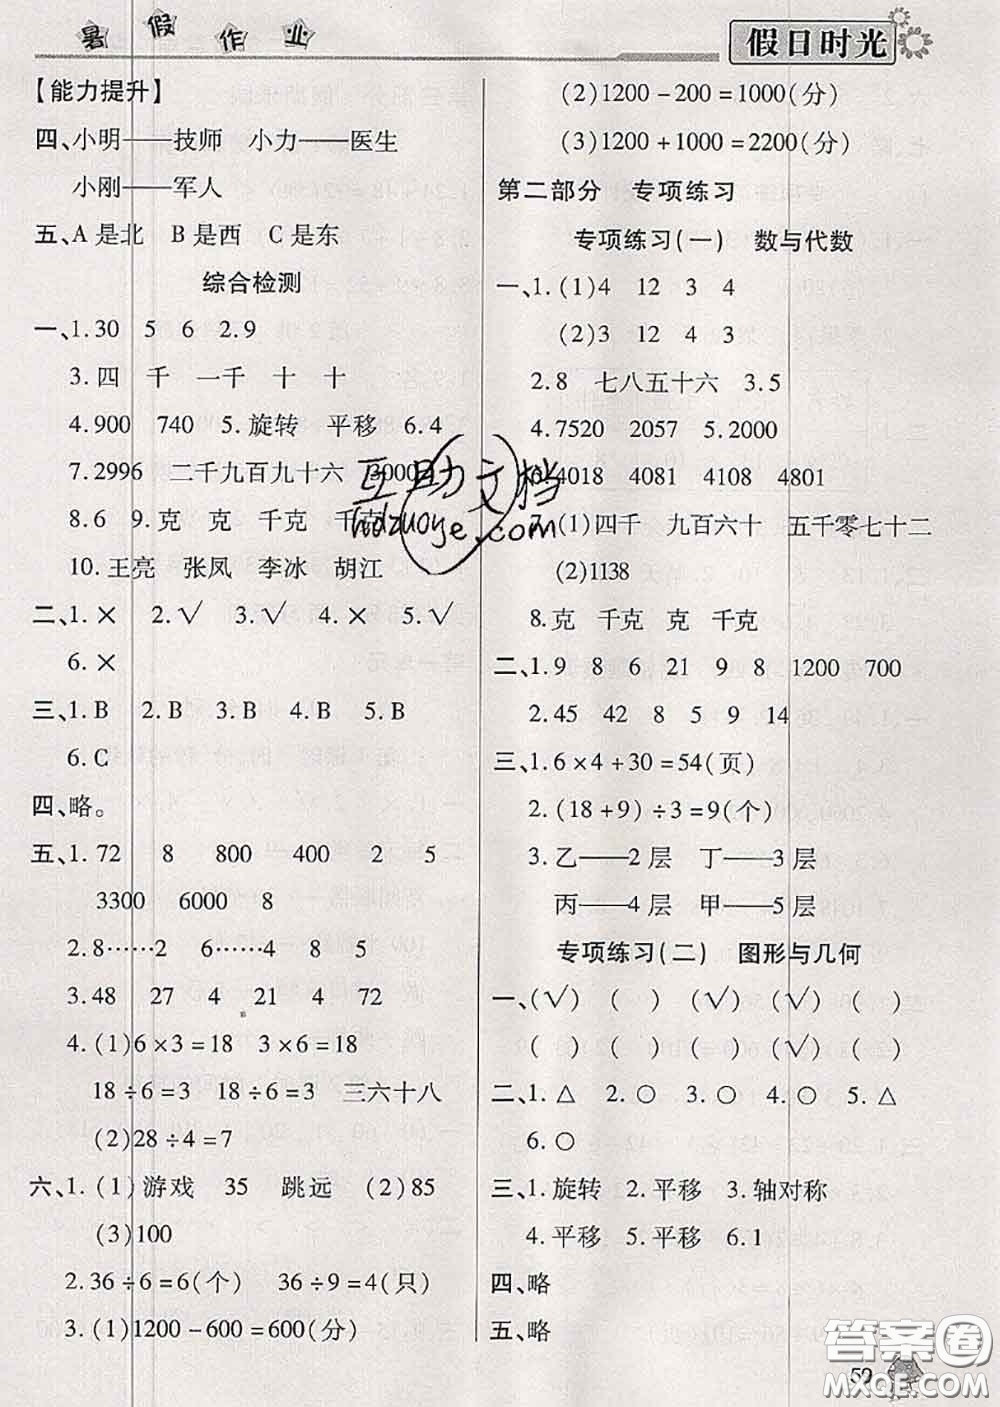 暑假作业
假日时光
【能力提升】
四、小明——技师 小力——医生
小刚——军人
五、A是北 B是西 C是东
综合检测
一、1.30 5 6 2.9
3.四 千 一千 十 十
4.900 740 5.旋转 平移 6.4
7.2996 二千九百九十六 3000
8.6 9.克 克 千克 千克
10.王亮 张凤 李冰 胡江
二、1.× 2.√ 3.√ 4.× 5.√
6.×
三、1.B 2.B 3.B 4.B 5.B
6.C
四、略。
五、1.72 8 800 400 2 5
3300 6000 8
2.8……2 6……4 8 5
3.48 27 4 21 4 72
4.(1)6×3=18 3×6=18
18÷6=3 18÷6=3 三六十八
(2)28÷4=7
六、1.(1)游戏 35 跳远 (2)85
(3)100
2.36÷6=6(个) 36÷9=4(只)
3.(1)1200-600=600(分)
(2)1200-200=1000(分)
(3)1200+1000=2200(分)
第二部分 专项练习
专项练习(一) 数与代数
一、1.(1)4 12 3 4
(2)3 12 4 3
2.8 七八五十六 3.5
4.7520 2057 5.2000
6.4018 4081 4108 4801
7.(1)四千 九百六十 五千零七十二
(2)1138
8.克 千克 克 千克
二、1.9 8 6 21 9 8 1200 700
2.45 42 8 5 9 14
三、1.6×4+30=54(页)
2.(18+9)÷3=9(个)
3.乙——2层 丁——3层
丙——4层 甲——5层
专项练习(二) 图形与几何
一、(√) ( ) (√) (√) ( )
( ) ( ) ( ) (√) ( )
二、1.△ 2.○ 3.○ 4.○ 5.△
6.○
三、1.旋转 2.平移 3.轴对称
4.平移 5.平移 6.1
四、略
五、略
互助文档
hdzuoye.com
答案圈
MXQE.COM